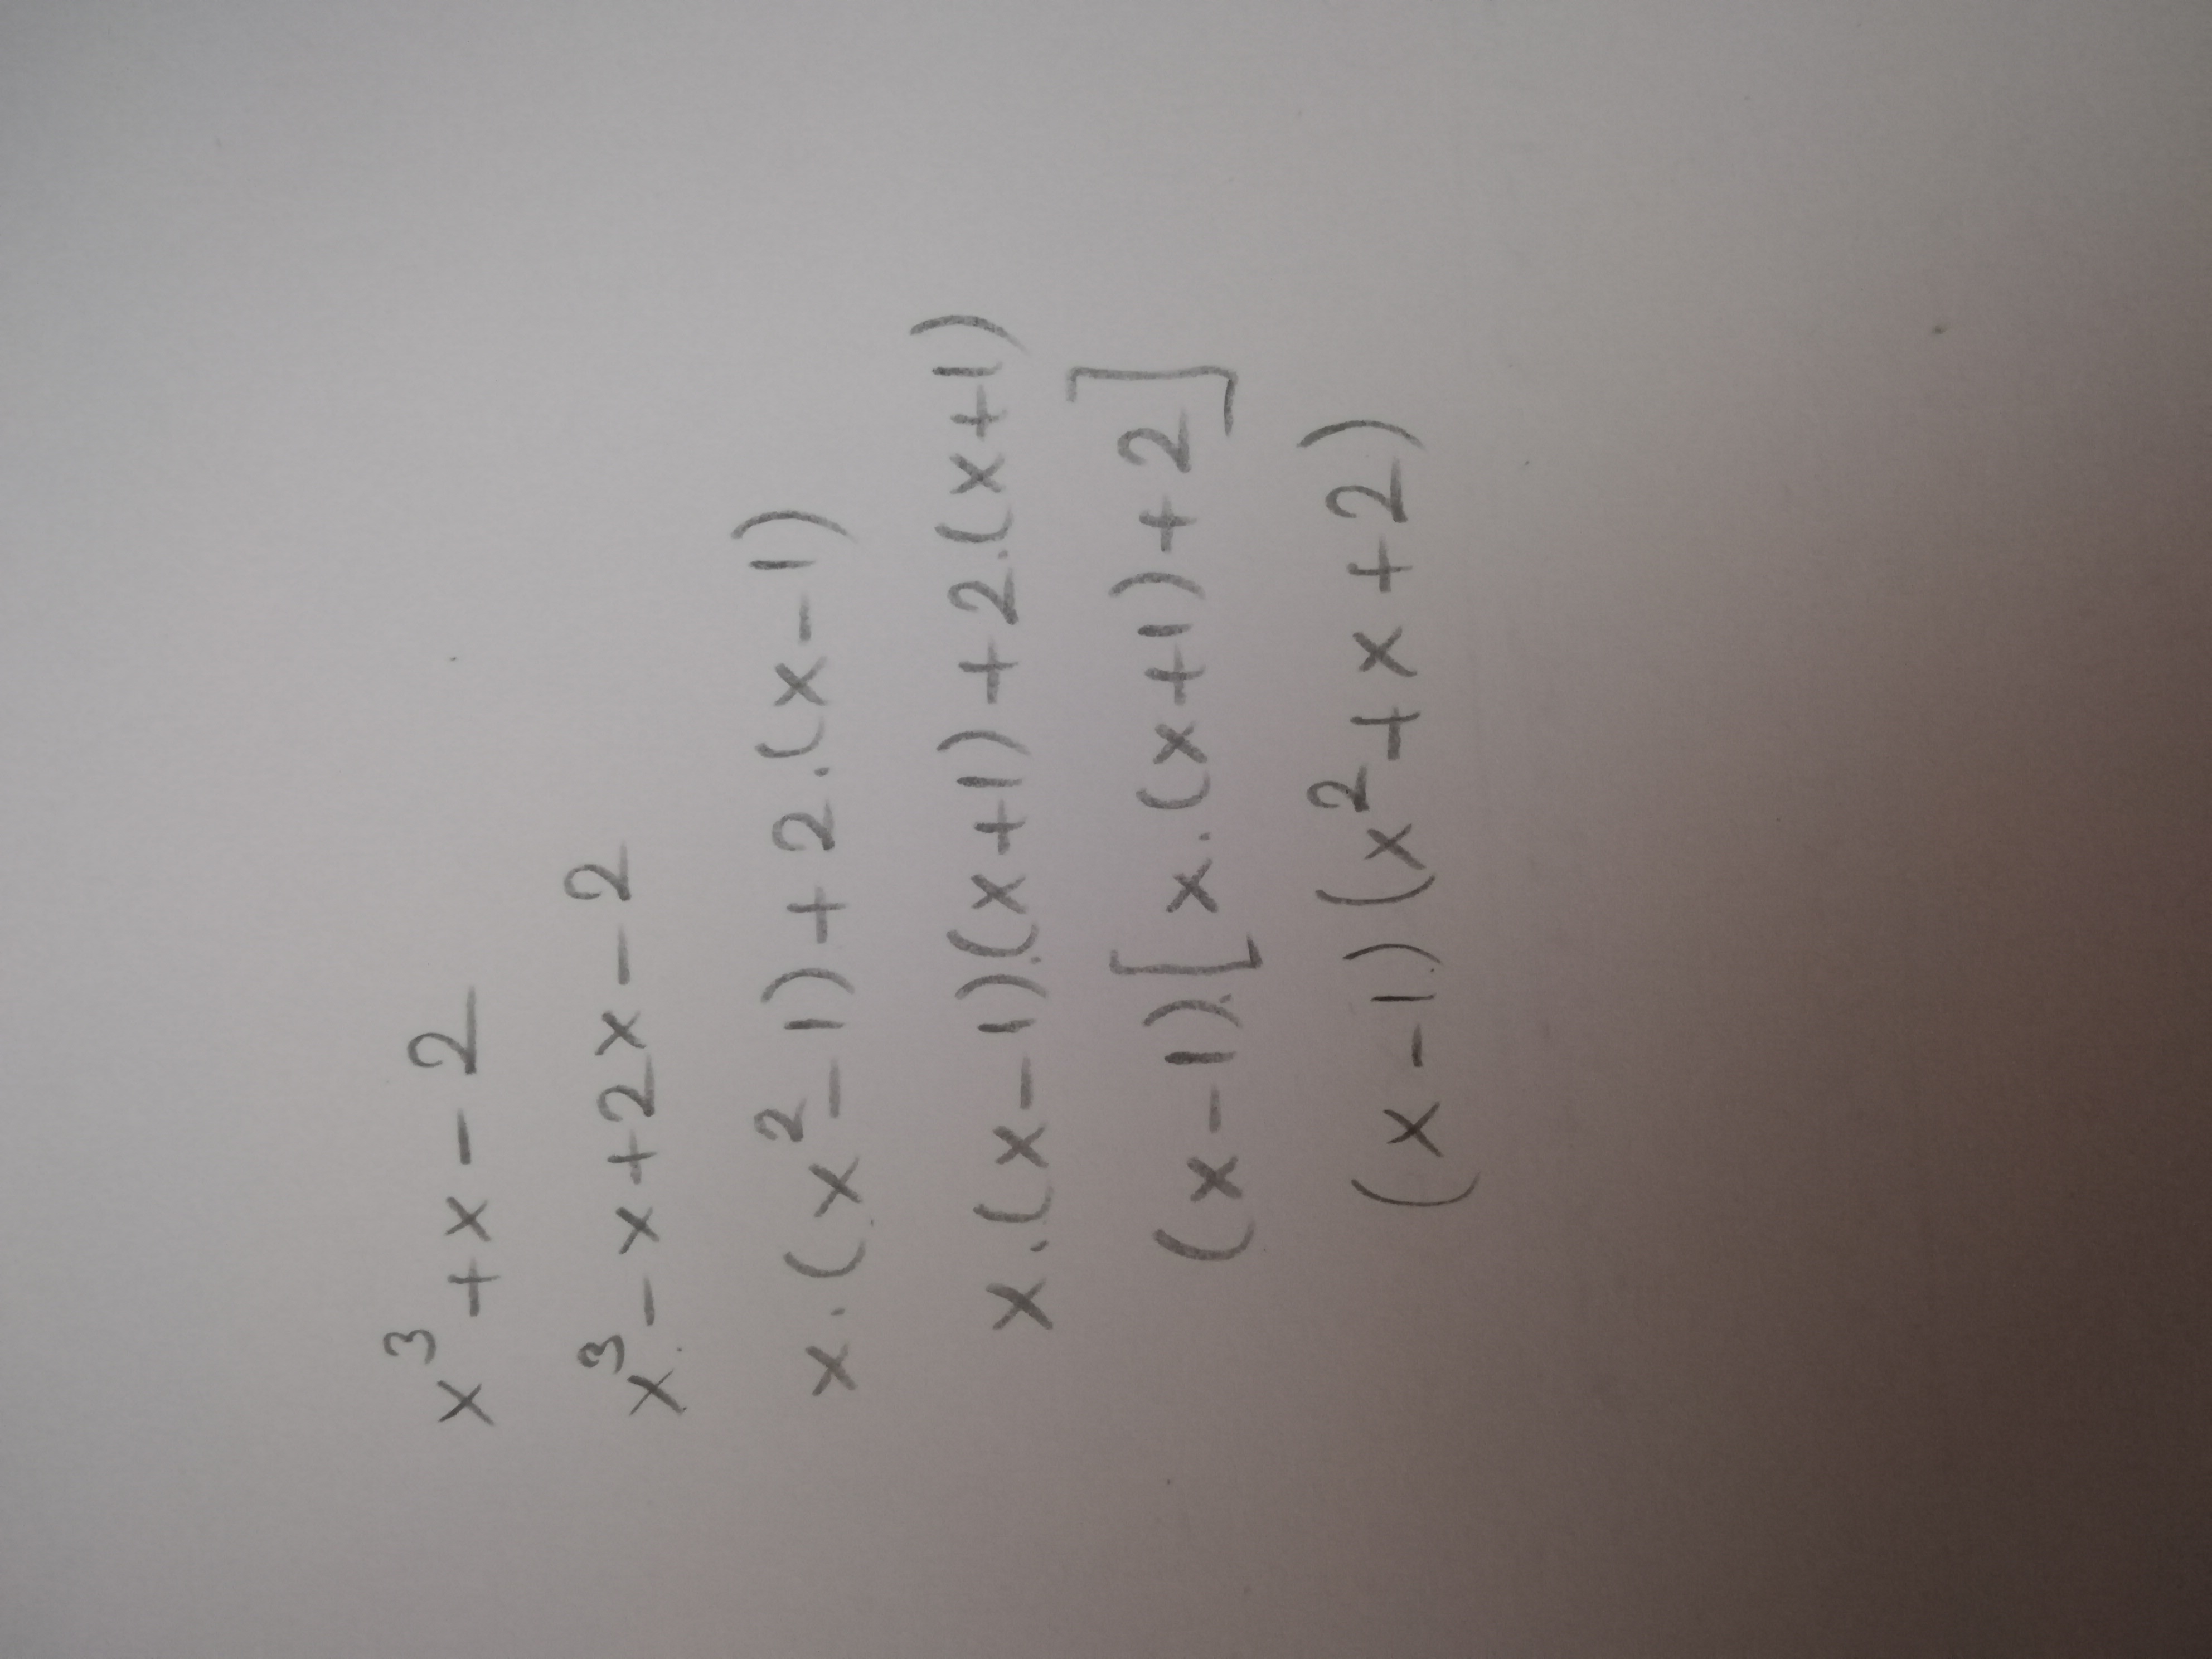 x³ + x - 2
x³ - x + 2x - 2
x.(x² - 1) + 2.(x - 1)
x.(x - 1).(x + 1) + 2.(x + 1)
(x - 1).[x.(x + 1) + 2]
(x - 1).(x² + x + 2)